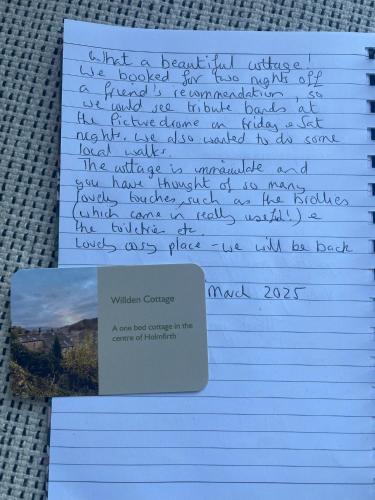 What a beautiful cottage!
We booked for two nights off
a friend's recommendation, so
we could see tribute bands at
the Picturedrome on Friday & Sat
nights. We also wanted to do some
local walks.
The cottage is immaculate and
you have thought of so many
lovely touches such as the brollies
(which came in really useful!) &
the toiletries etc.
Lovely cosy place - we will be back
March 2025
Willden Cottage
A one bed cottage in the
centre of Holmfirth